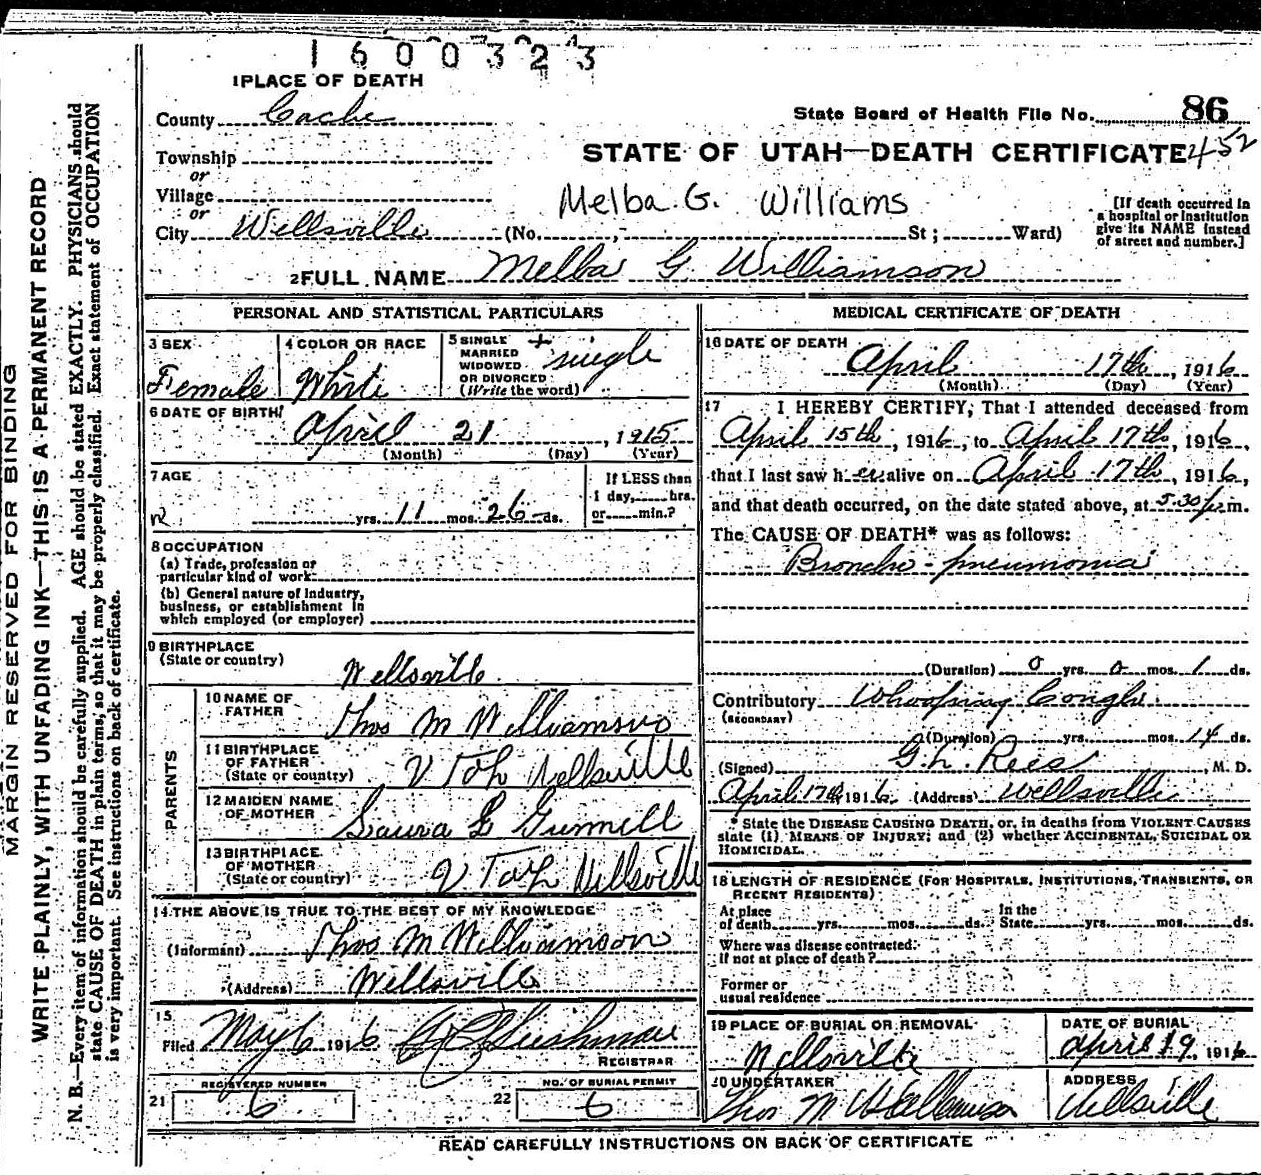 1600323
1 PLACE OF DEATH
County Cache
State Board of Health File No. 86
Township
STATE OF UTAH—DEATH CERTIFICATE 452
or
Village
Melba G. Williams
[If death occurred in
a hospital or institution
give its NAME instead
of street and number.]
or
City Wellsville (No. St; Ward)
2 FULL NAME Melba G Williamson
PERSONAL AND STATISTICAL PARTICULARS
3 SEX
Female
4 COLOR OR RACE
White
5 SINGLE
MARRIED
WIDOWED
OR DIVORCED
(Write the word)
single
6 DATE OF BIRTH
April 21, 1915
(Month) (Day) (Year)
7 AGE
yrs. 11 mos. 26 ds.
If LESS than
1 day, hrs.
or min.?
8 OCCUPATION
(a) Trade, profession or
particular kind of work
(b) General nature of industry,
business, or establishment in
which employed (or employer)
9 BIRTHPLACE
(State or country)
Wellsville
PARENTS
10 NAME OF
FATHER
Thos M Williamson
11 BIRTHPLACE
OF FATHER
(State or country)
Utah Wellsville
12 MAIDEN NAME
OF MOTHER
Laura E Gunnell
13 BIRTHPLACE
OF MOTHER
(State or country)
Utah Wellsville
14 THE ABOVE IS TRUE TO THE BEST OF MY KNOWLEDGE
(Informant) Thos M Williamson
(Address) Wellsville
15
Filed May 6 1916
REGISTRAR
REGISTERED NUMBER
21 6
NO. OF BURIAL PERMIT
22 6
MEDICAL CERTIFICATE OF DEATH
16 DATE OF DEATH
April 17th, 1916
(Month) (Day) (Year)
17 I HEREBY CERTIFY, That I attended deceased from
April 15th, 1916, to April 17th, 1916,
that I last saw her alive on April 17th, 1916,
and that death occurred, on the date stated above, at 5.30 p.m.
The CAUSE OF DEATH* was as follows:
Broncho-pneumonia
(Duration) 0 yrs. 0 mos. 1 ds.
Contributory Whooping Cough
(SECONDARY)
(Duration) yrs. mos. 14 ds.
(Signed) G.L. Rees, M. D.
April 17th, 1916 (Address) Wellsville
* State the DISEASE CAUSING DEATH, or, in deaths from VIOLENT CAUSES
state (1) MEANS OF INJURY; and (2) whether ACCIDENTAL, SUICIDAL OR
HOMICIDAL.
18 LENGTH OF RESIDENCE (FOR HOSPITALS, INSTITUTIONS, TRANSIENTS, OR
RECENT RESIDENTS)
At place In the
of death yrs. mos. ds. State yrs. mos. ds.
Where was disease contracted,
if not at place of death?
Former or
usual residence
19 PLACE OF BURIAL OR REMOVAL
Wellsville
DATE OF BURIAL
April 19, 1916
20 UNDERTAKER
Thos M Williamson
ADDRESS
Wellsville
READ CAREFULLY INSTRUCTIONS ON BACK OF CERTIFICATE
MARGIN RESERVED FOR BINDING
WRITE PLAINLY, WITH UNFADING INK—THIS IS A PERMANENT RECORD
N. B.—Every item of information should be carefully supplied. AGE should be stated EXACTLY. PHYSICIANS should
state CAUSE OF DEATH in plain terms, so that it may be properly classified. Exact statement of OCCUPATION
is very important. See instructions on back of certificate.